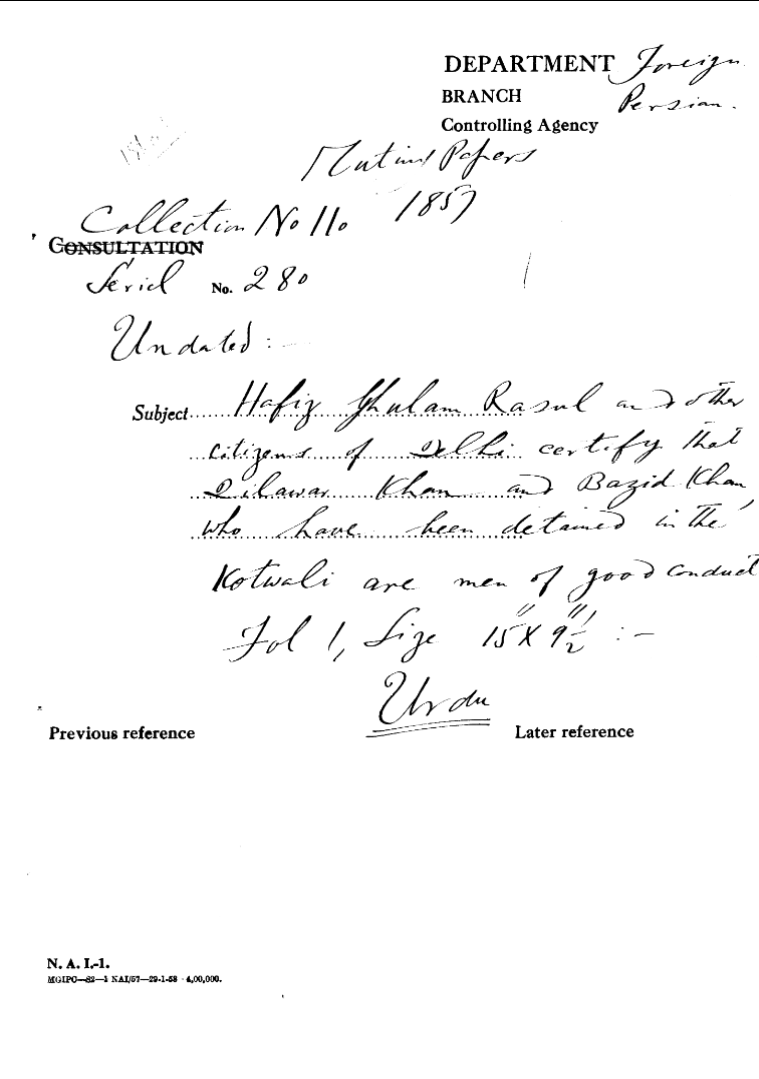 DEPARTMENT Foreign
BRANCH Persian.
Controlling Agency
Mutiny Papers
1857
Collection No 110
CONSULTATION
Serial No. 280
Undated :-
Subject Hafiz Ghulam Rasul and other
citizens of Delhi certify that
Dilawar Khan and Bazid Khan,
who have been detained in the
Kotwali are men of good conduct
Fol 1, Size 15" X 9 1/2" :-
Urdu
Previous reference
Later reference
N. A. I.-1.
MGIPC—82—1 NAI/57—29-1-58 - 4,00,000.